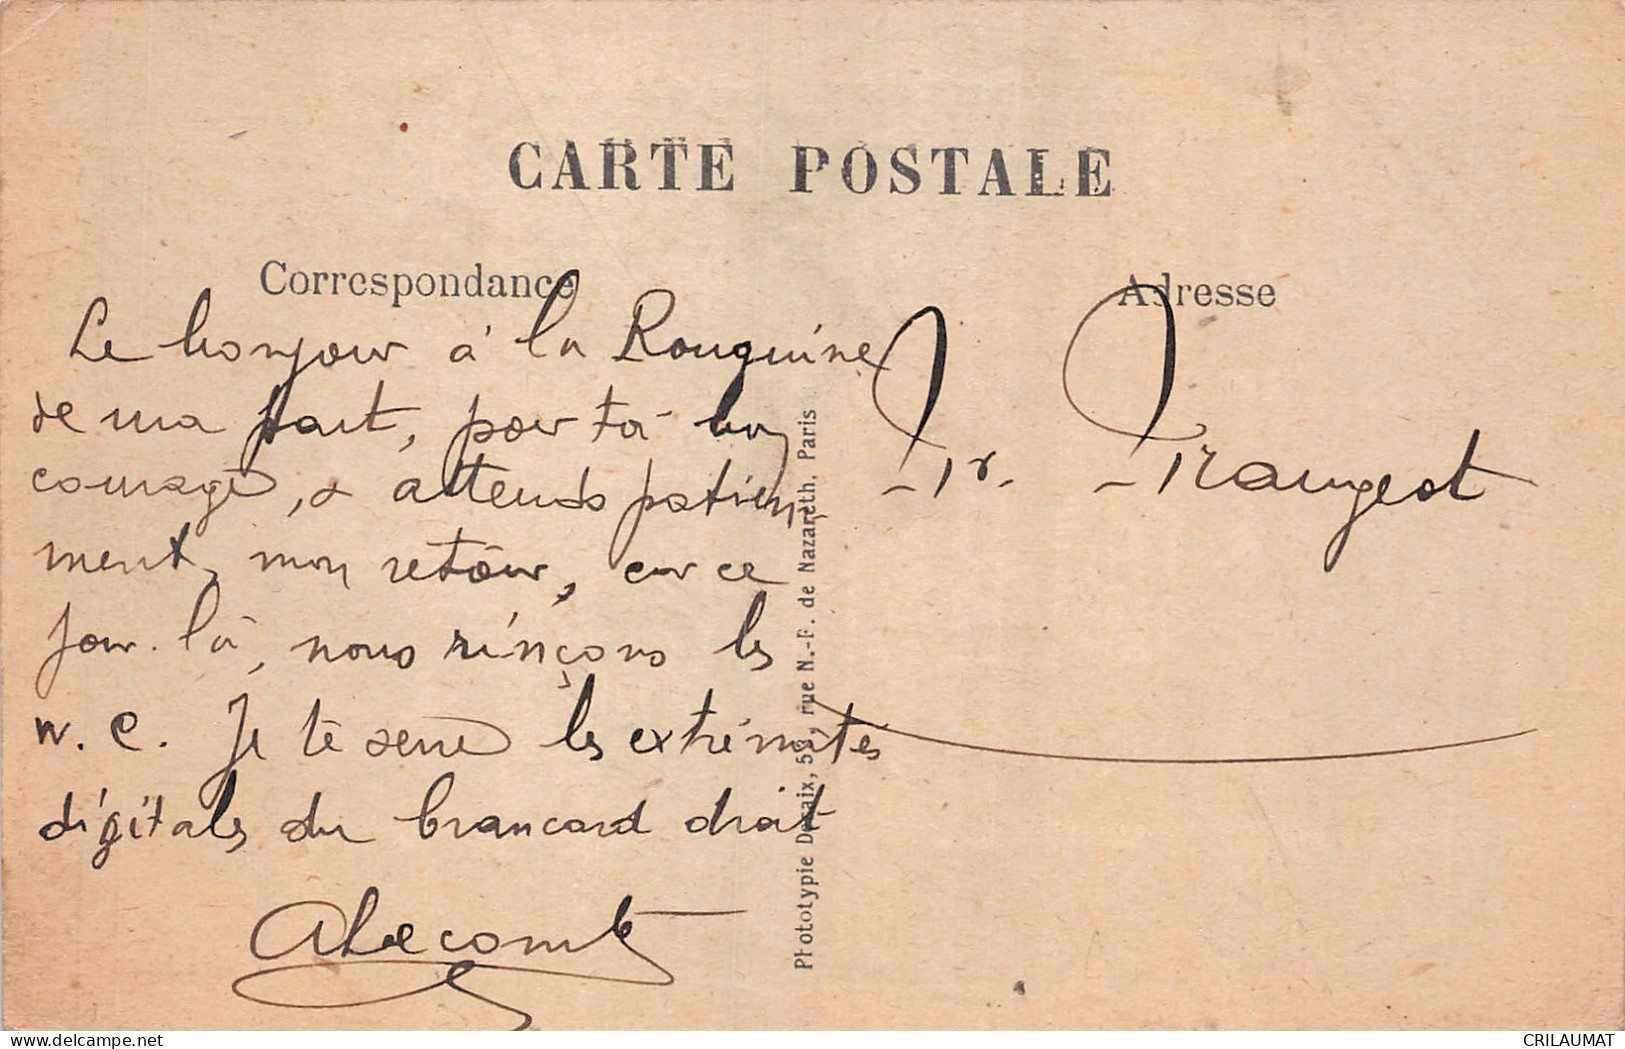 CARTE POSTALE
Correspondance
Adresse
Le bonjour à la Rouquine
de ma part, porta bon
courage, & attends patiem-
ment, mon retour, car ce
jour là, nous rinçons les
W. C. Je te serre les extrémités
digitals du brancard droit
ALecomte
Mr. Frangeot
Phototypie Desaix, 53, rue N.-D. de Nazareth, Paris
delcampe.net
CRILAUMAT